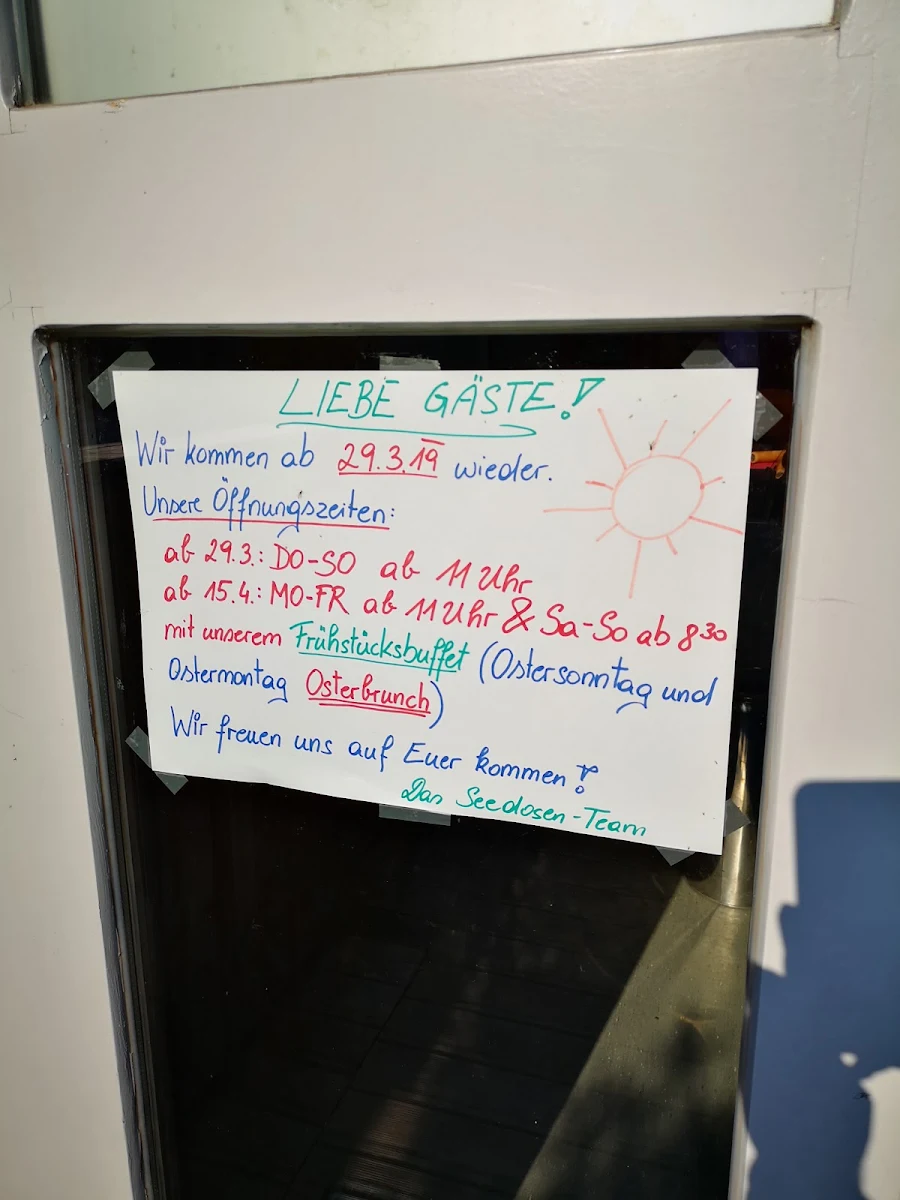 LIEBE GÄSTE!
Wir kommen ab 29.3.19 wieder.
Unsere Öffnungszeiten:
ab 29.3.: DO-SO ab 11 Uhr
ab 15.4.: MO-FR ab 11 Uhr & Sa-So ab 8 30
mit unserem Frühstücksbuffet (Ostersonntag und
Ostermontag Osterbrunch)
Wir freuen uns auf Euer kommen!
Das Seedosen-Team